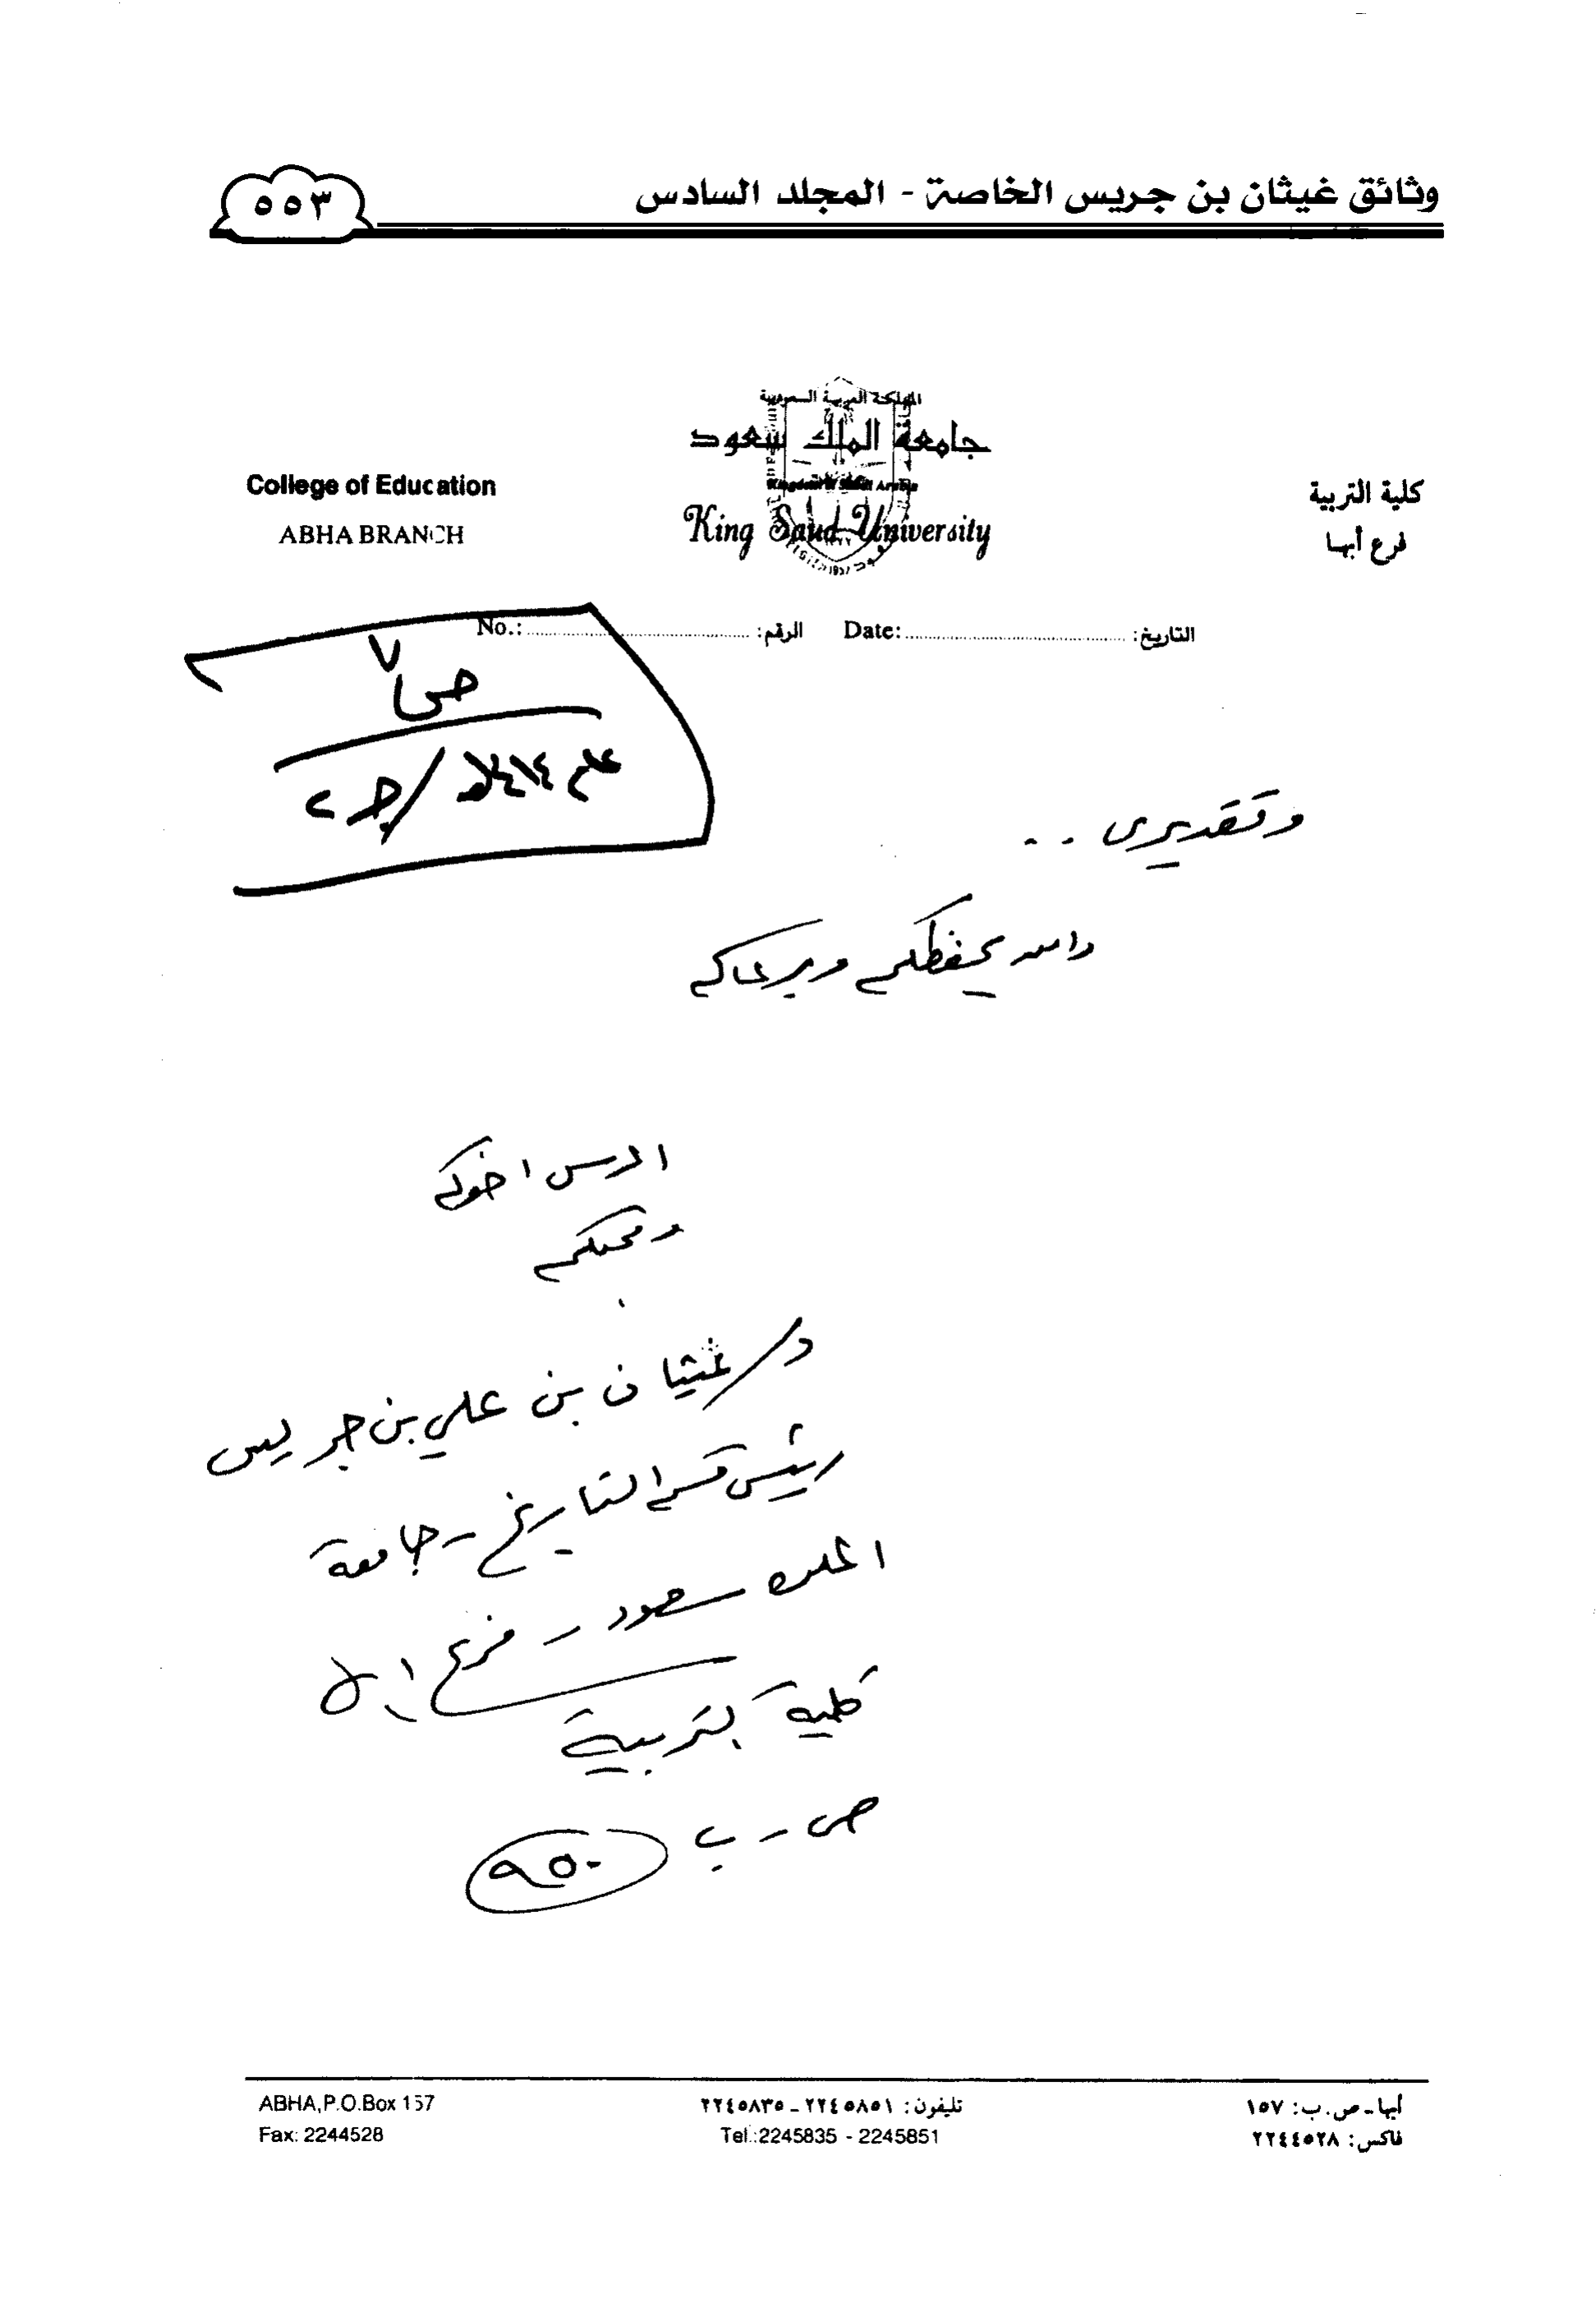 وثائق غيثان بن جريس الخاصة - المجلد السادس
٥٥٣
المملكة العربية السعودية
جامعة الملك سعود
King Saud University
كلية التربية
فرع أبها
College of Education
ABHA BRANCH
التاريخ: Date: الرقم: No.:
ص ٧
علم ١٤١٤هـ / ج ٢
وتقديري . .
والله يحفظكم ويرعاكم
اخوكم
ومحبكم
د/ غيثان بن علي بن جريس
رئيس قسم التاريخ - جامعة
الملك سعود - فرع أبها
كلية التربية
ص - ب ٩٥٠
أبها - ص . ب: ١٥٧
فاكس: ٢٢٤٤٥٢٨
تليفون: ٢٢٤٥٨٥١ - ٢٢٤٥٨٣٥
Tel.:2245835 - 2245851
ABHA,P.O.Box 157
Fax: 2244528